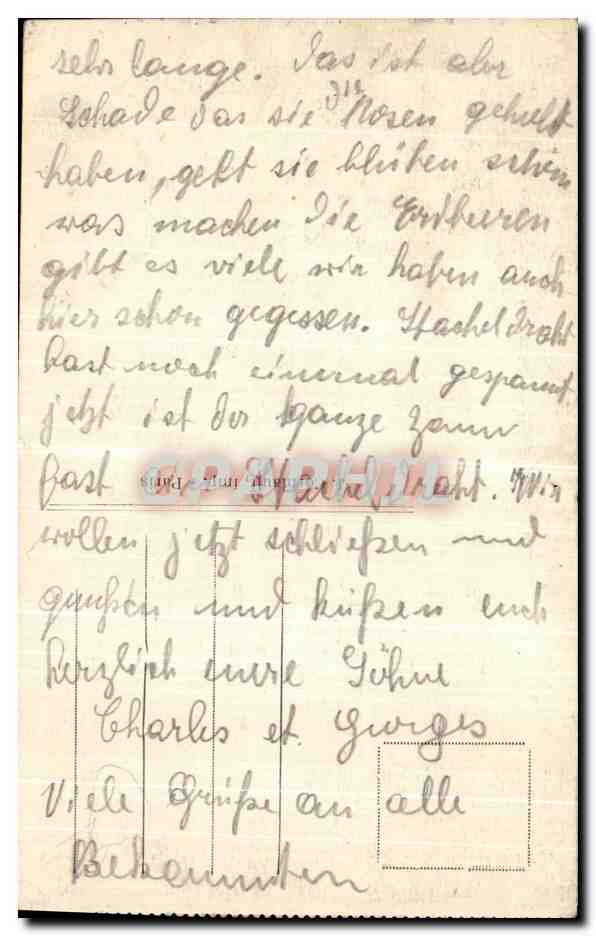 sehr lange. Das ist aber
Schade das sie die Rosen geholt
haben, gelt sie blühen schön
was machen die Erdberen
gibt es viele wir haben auch
hier schon gegessen. Stacheldraht
fast noch einmal gespannt
jetzt ist der ganze Zaun
fast Stacheldraht. Wir
imp. Paris
wollen jetzt schließen und
grüßen und küßen euch
herzlich eure Söhne
Charles et Georges
Viele Grüße an alle
Bekannten